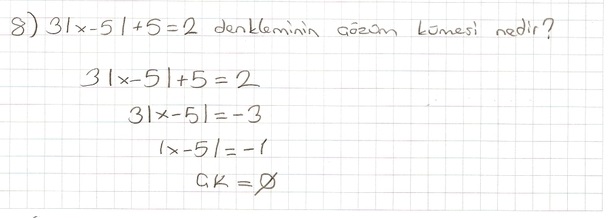 8) 3|x-5|+5=2 denkleminin çözüm kümesi nedir?
3|x-5|+5=2
3|x-5|=-3
|x-5|=-1
ÇK=∅